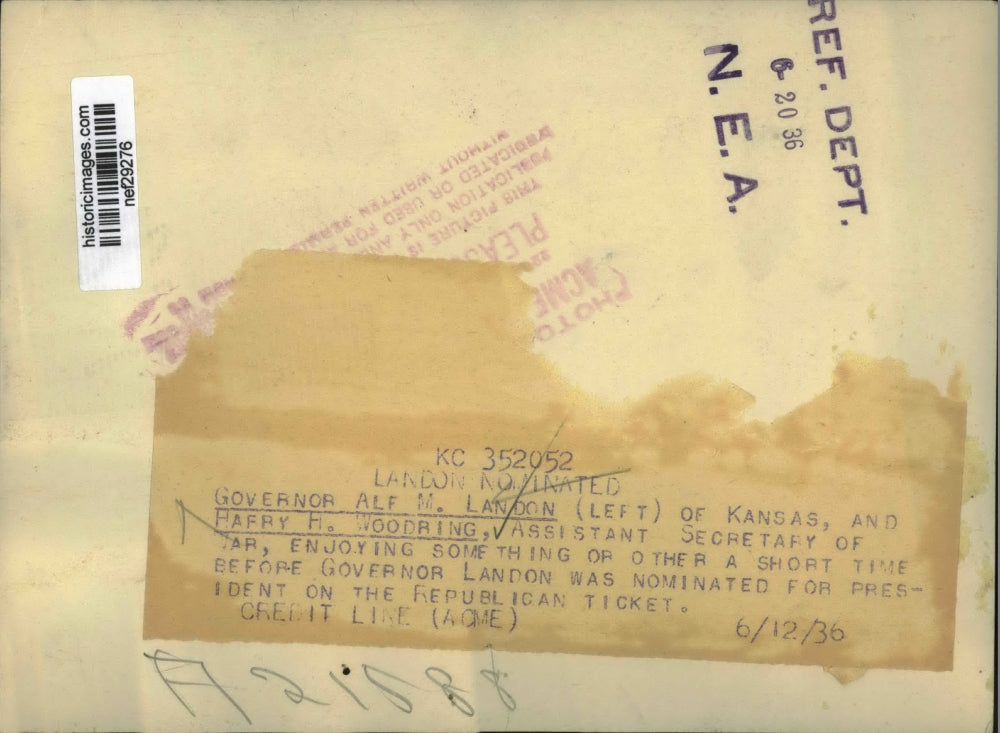 REF. DEPT.
6-20 36
N. E. A.
historicimages.com
nef29276
PHOTO
ACME
PLEAS
THIS PICTURE IS
PUBLICATION ONLY AN
DICATED OR USED FOR
WITHOUT WRITTEN PERMIS
KC 352052
LANDON NOMINATED
GOVERNOR ALF M. LANDON (LEFT) OF KANSAS, AND
HARRY H. WOODRING, ASSISTANT SECRETARY OF
WAR, ENJOYING SOMETHING OR OTHER A SHORT TIME
BEFORE GOVERNOR LANDON WAS NOMINATED FOR PRES-
IDENT ON THE REPUBLICAN TICKET.
CREDIT LINE (ACME)
6/12/36